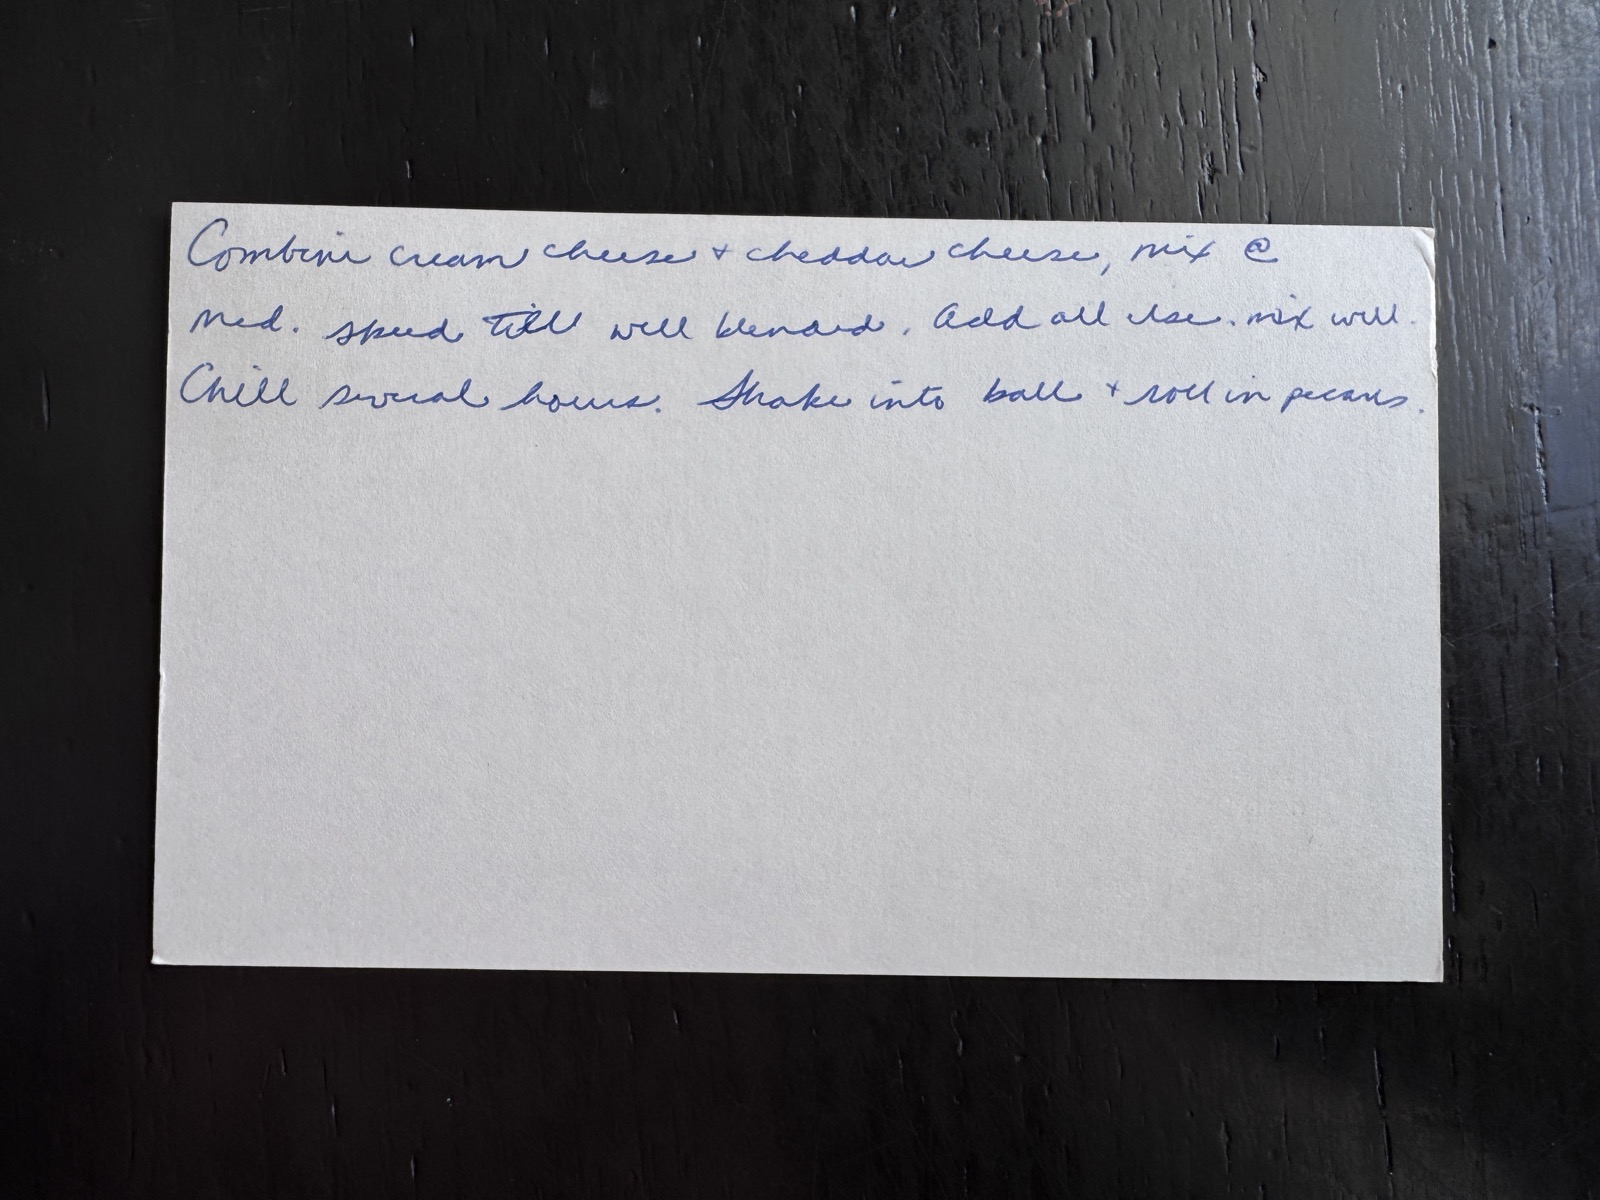 Combine cream cheese + cheddar cheese, mix @
med. speed till well blended. Add all else. mix well.
Chill several hours. Shake into ball + roll in pecans.